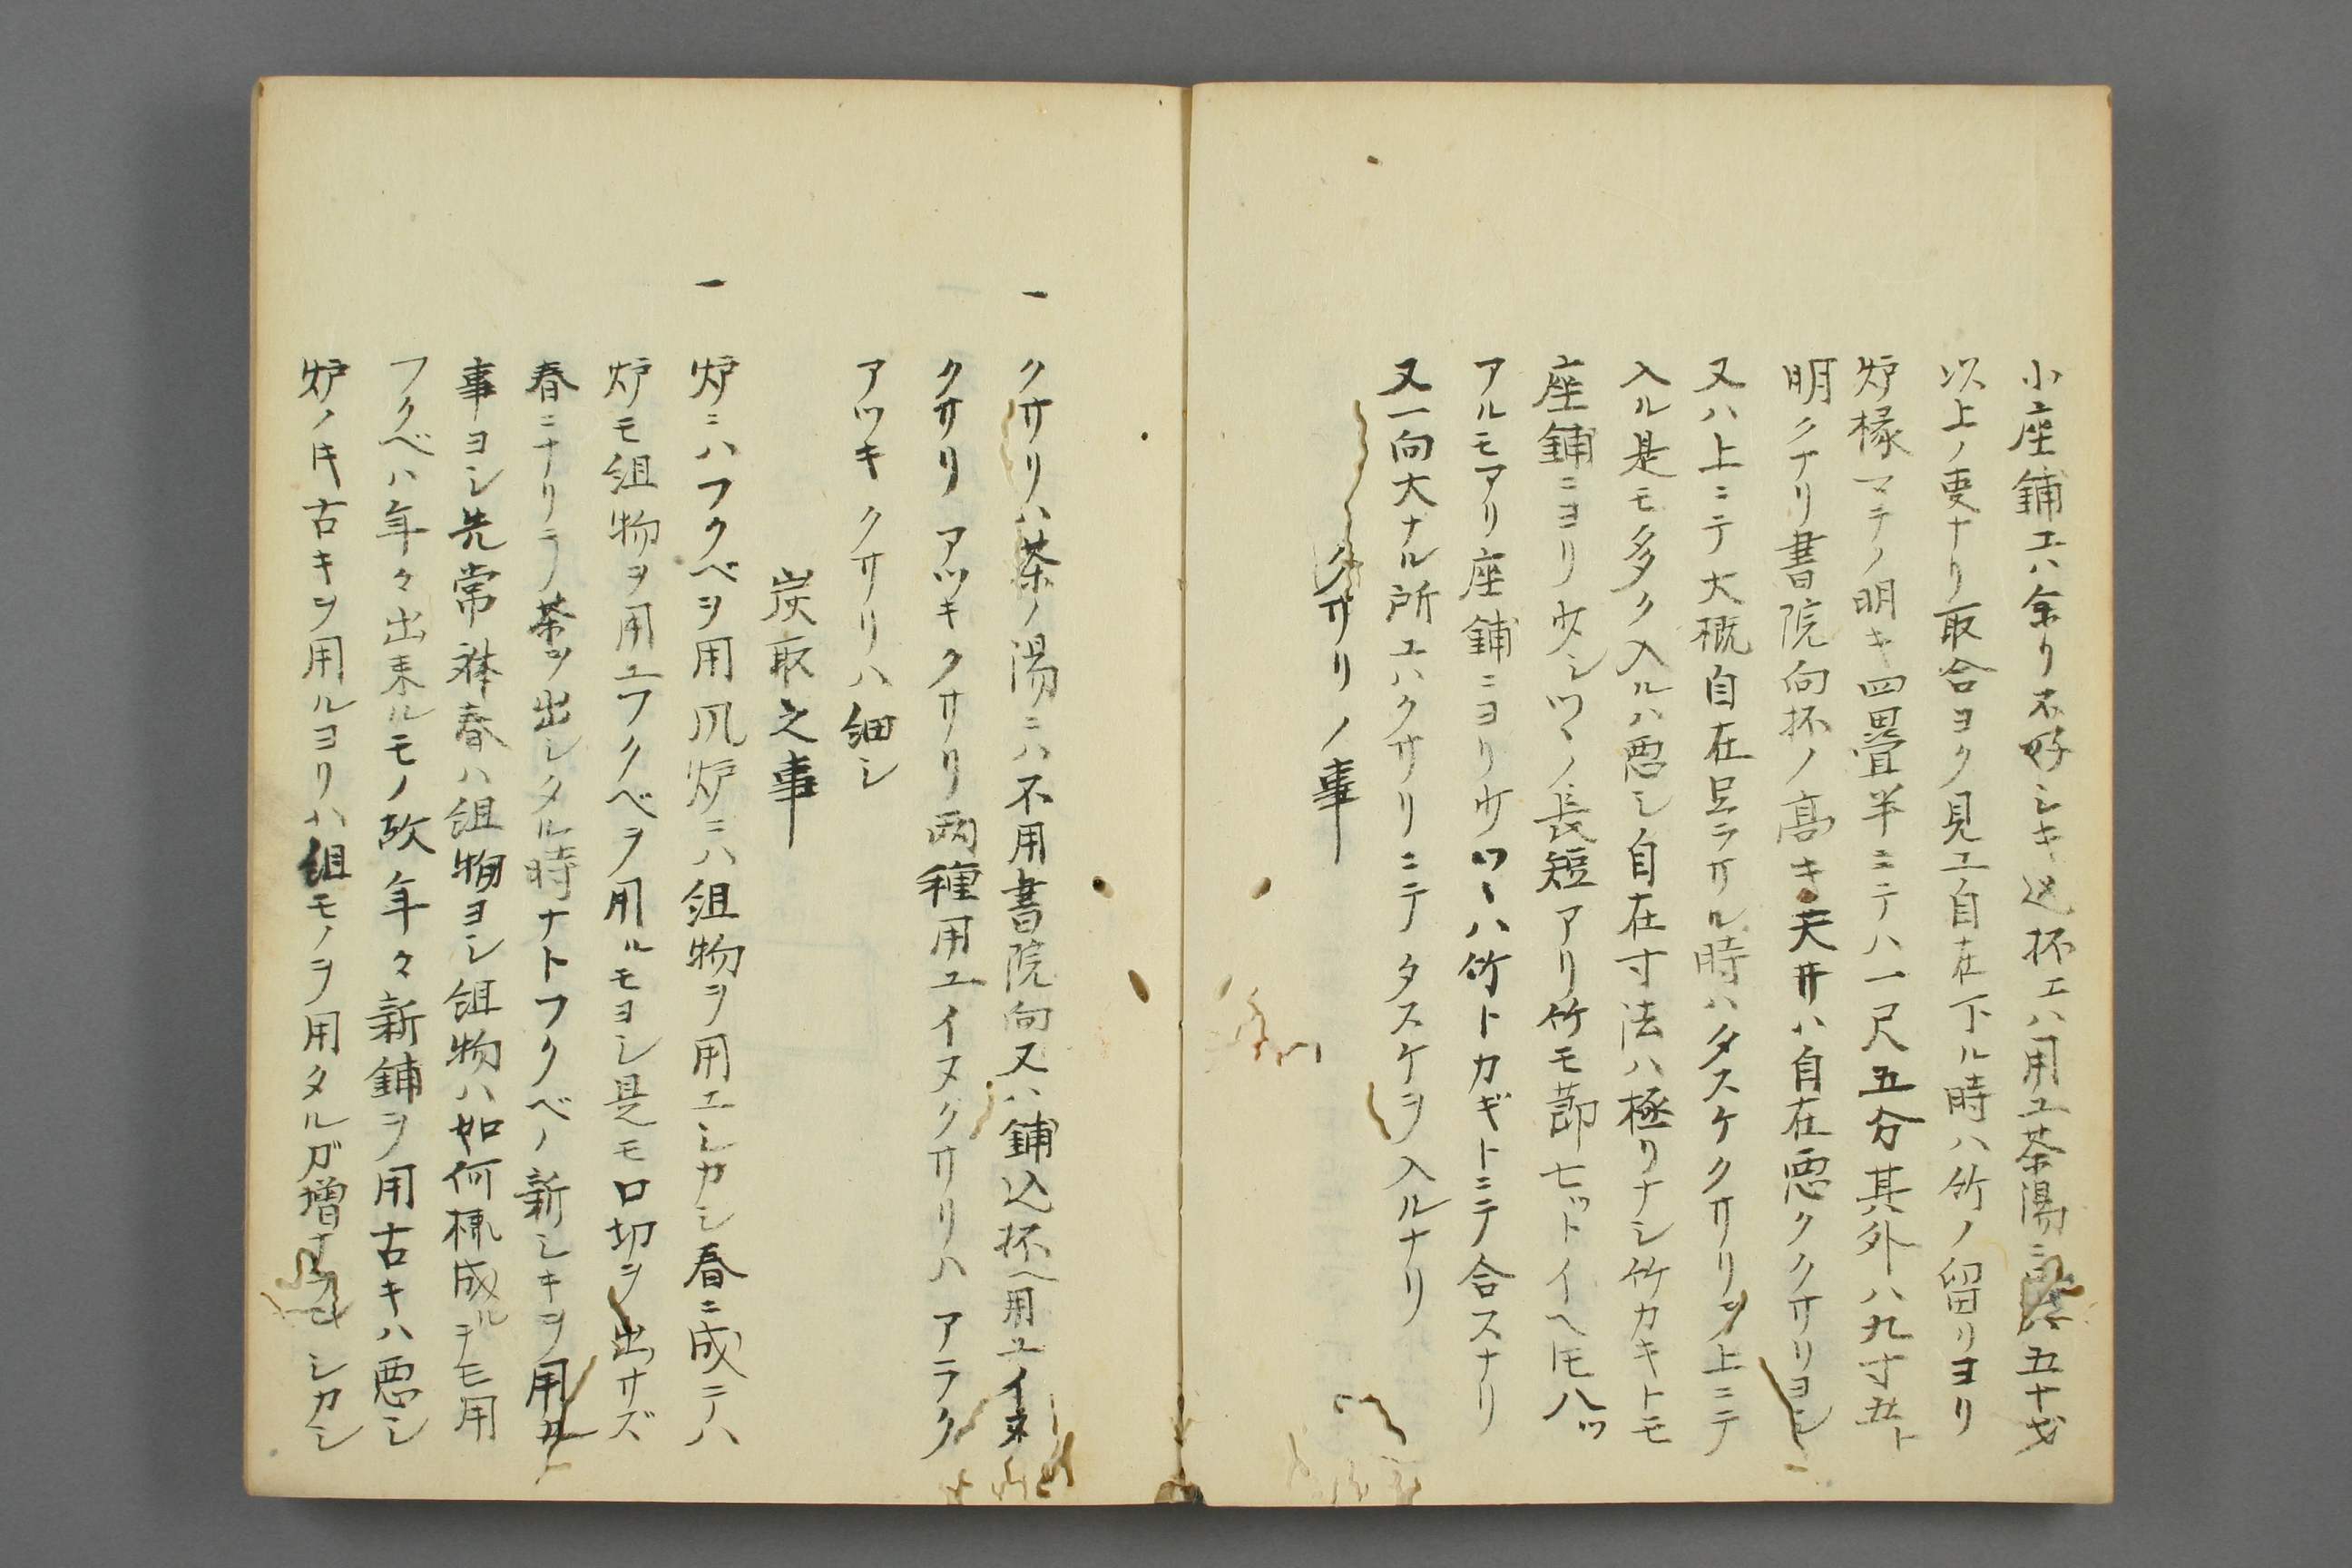 小座鋪エハ余リ不好シキ込抔エハ用ユ茶湯ニ五十才
以上ノ叓ナリ取合ヨク見エ自在下ル時ハ竹ノ留リヨリ
炉椽マテノ明キ四畳半ニテハ一尺五分其外ハ九寸五ト
明クナリ書院向抔ノ高キ天井ハ自在悪ククサリヨシ
又ハ上ニテ大概自在足ラサル時ハタスケクサリヲ上ニテ
入ル是モ多ク入ルハ悪シ自在寸法ハ極リナシ竹カキトモ
座鋪ニヨリ少シツヽノ長短アリ竹モ節七ットイヘ𪜈八ッ
アルモアリ座鋪ニヨリサワ〱ハ竹トカギトニテ合スナリ
又一向大ナル所エハクサリニテタスケヲ入ルナリ
クサリノ事
一 クサリハ茶ノ湯ニハ不用書院向又ハ鋪込抔ヘ用ユイヌ
クサリアツキクサリ両種用ユイヌクサリハアラク
アツキクサリハ細シ
炭取之事
一 炉ニハフクベヲ用風炉ニハ組物ヲ用エシカシ春ニ成テハ
炉モ組物ヲ用ユフクベヲ用ルモヨシ是モ口切ヲ出サズ
春ニナリテ茶ヲ出シタル時ナトフクベノ新シキヲ用ル
事ヨシ先常躰春ハ組物ヨシ組物ハ如何様成ルテモ用
フクベハ年々出来ルモノ故年々新鋪ヲ用古キハ悪シ
炉ノ𪜈古キヲ用ルヨリハ組モノヲ用タルガ増ナリシカシ